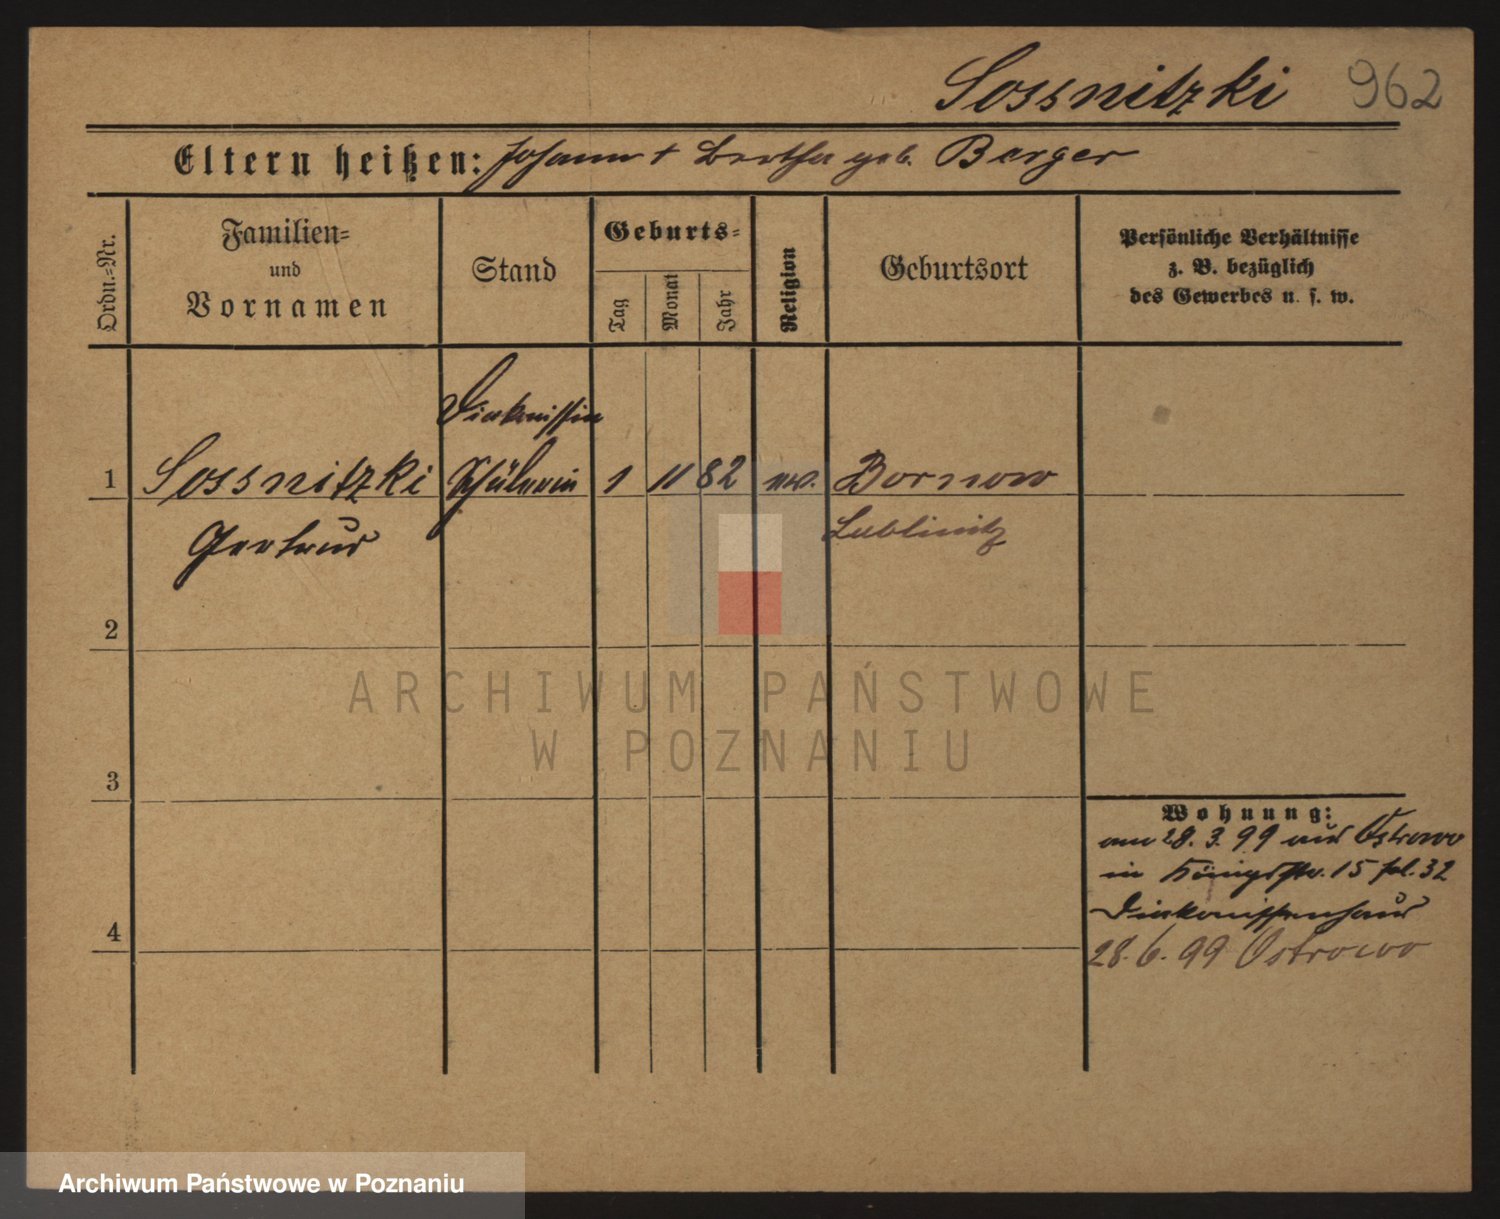 Sossnitzki 962
Eltern heißen: Johann + Bertha geb. Berger
Ordn.-Nr.
Familien-
und
Vornamen
Stand
Geburts-
Tag
Monat
Jahr
Religion
Geburtsort
Persönliche Verhältnisse
z. B. bezüglich
des Gewerbes u. s. w.
Diakonissin
1 Sossnitzki Schülerin 1 11 82 ev. Bornow
Gertrud Lublinitz
2
3
4
Wohnung:
am 28. 3. 99 aus Ostrowo
in Königsstr. 15 fol. 32
Diakonissenhaus
28. 6. 99 Ostrowo
ARCHIWUM PAŃSTWOWE
W POZNANIU
Archiwum Państwowe w Poznaniu